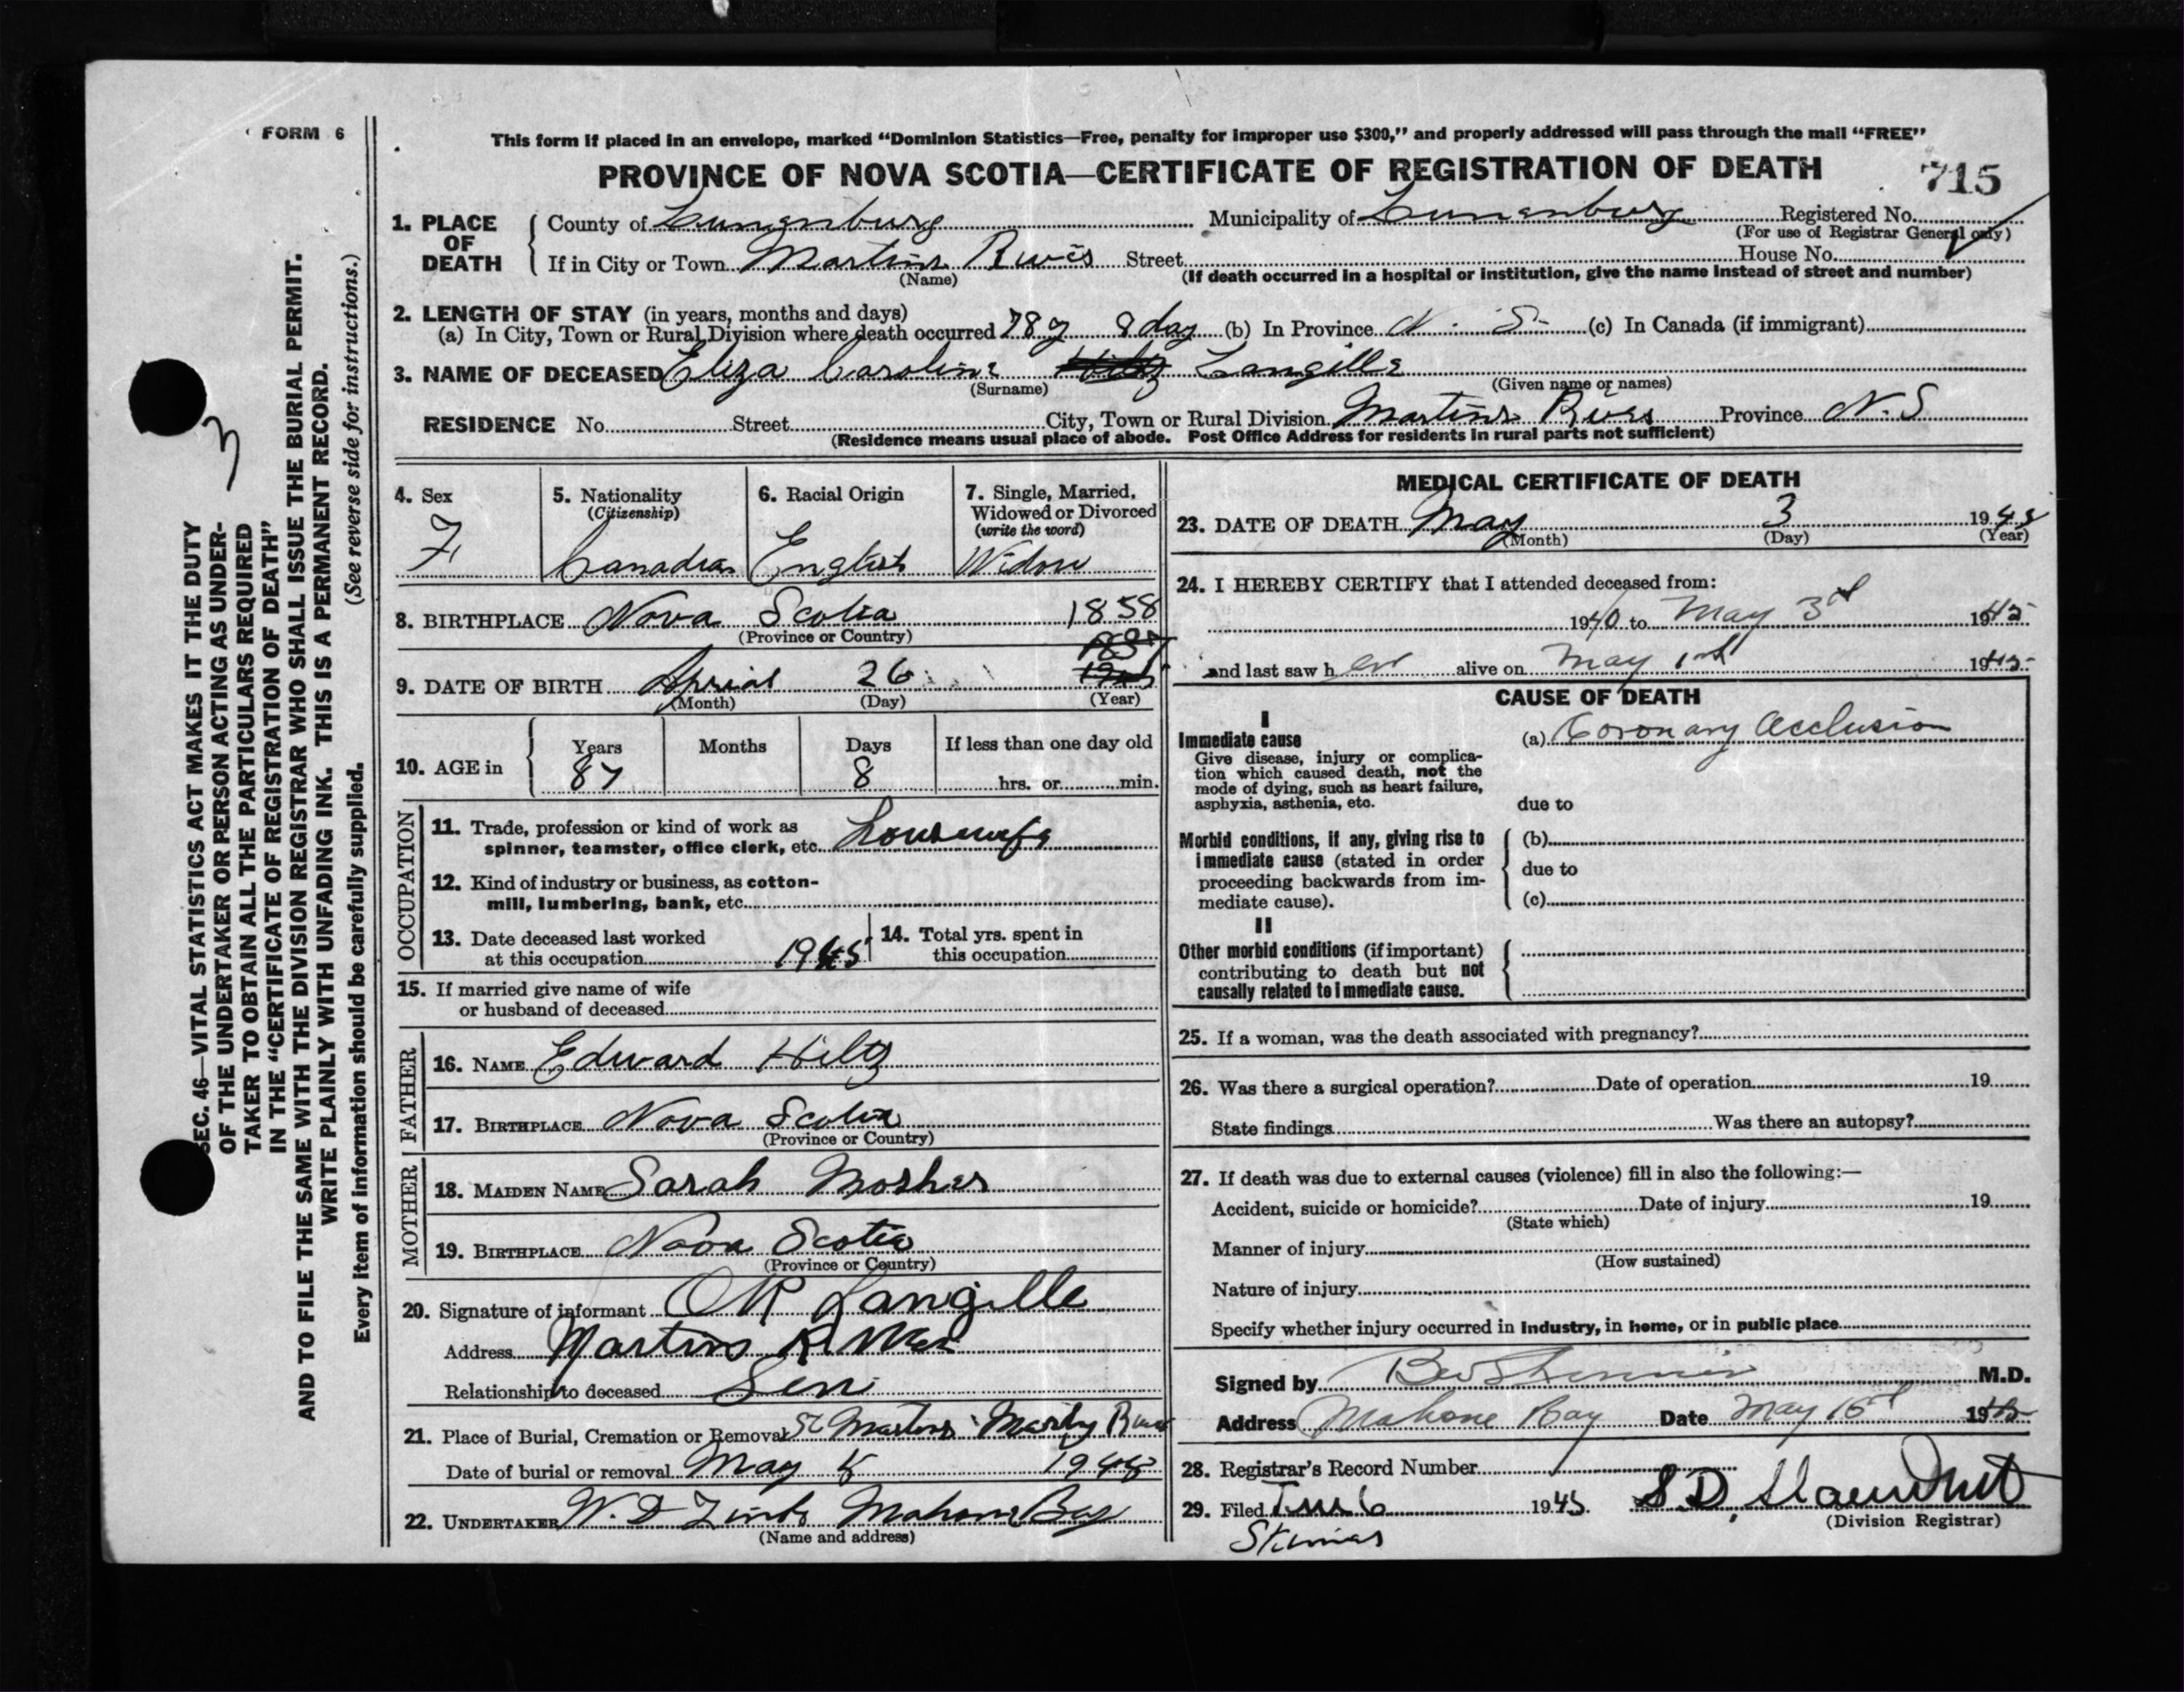 FORM 6
This form if placed in an envelope, marked “Dominion Statistics—Free, penalty for improper use $300,” and properly addressed will pass through the mail “FREE”
PROVINCE OF NOVA SCOTIA—CERTIFICATE OF REGISTRATION OF DEATH
715
1. PLACE OF DEATH
County of Lunenburg Municipality of Lunenburg Registered No.
(For use of Registrar General only)
If in City or Town Martins River Street House No.
(Name) (If death occurred in a hospital or institution, give the name instead of street and number)
2. LENGTH OF STAY (in years, months and days)
(a) In City, Town or Rural Division where death occurred 8 day (b) In Province N. S. (c) In Canada (if immigrant)
3. NAME OF DECEASED Eliza Caroline Hiltz Langille
(Surname) (Given name or names)
RESIDENCE No. Street City, Town or Rural Division Martins River Province N.S
(Residence means usual place of abode. Post Office Address for residents in rural parts not sufficient)
SEC. 46—VITAL STATISTICS ACT MAKES IT THE DUTY
OF THE UNDERTAKER OR PERSON ACTING AS UNDER-
TAKER TO OBTAIN ALL THE PARTICULARS REQUIRED
IN THE “CERTIFICATE OF REGISTRATION OF DEATH”
AND TO FILE THE SAME WITH THE DIVISION REGISTRAR WHO SHALL ISSUE THE BURIAL PERMIT.
WRITE PLAINLY WITH UNFADING INK. THIS IS A PERMANENT RECORD.
Every item of information should be carefully supplied. (See reverse side for instructions.)
3
4. Sex
F.
5. Nationality
(Citizenship)
Canadian
6. Racial Origin
English
7. Single, Married,
Widowed or Divorced
(write the word)
Widow
8. BIRTHPLACE Nova Scotia 1858
(Province or Country)
1857
9. DATE OF BIRTH April 26
(Month) (Day) (Year)
10. AGE in
Years Months Days If less than one day old
87 8 hrs. or min.
OCCUPATION
11. Trade, profession or kind of work as
spinner, teamster, office clerk, etc. housewife
12. Kind of industry or business, as cotton-
mill, lumbering, bank, etc.
13. Date deceased last worked
at this occupation 1945
14. Total yrs. spent in
this occupation
15. If married give name of wife
or husband of deceased
FATHER
16. NAME Edward Hiltz
17. BIRTHPLACE Nova Scotia
(Province or Country)
MOTHER
18. MAIDEN NAME Sarah Mosher
19. BIRTHPLACE Nova Scotia
(Province or Country)
20. Signature of informant OR Langille
Address Martins River
Relationship to deceased Son
21. Place of Burial, Cremation or Removal St Martins
Date of burial or removal May
22. UNDERTAKER W. D Zinck Mahone Bay
(Name and address)
MEDICAL CERTIFICATE OF DEATH
23. DATE OF DEATH May 3 1945
(Month) (Day) (Year)
24. I HEREBY CERTIFY that I attended deceased from:
1940 to May 3rd 1945
and last saw her alive on May 1st 1945
CAUSE OF DEATH
I
Immediate cause
Give disease, injury or complica-
tion which caused death, not the
mode of dying, such as heart failure,
asphyxia, asthenia, etc.
(a) Coronary Occlusion
due to
Morbid conditions, if any, giving rise to
immediate cause (stated in order
proceeding backwards from im-
mediate cause).
(b)
due to
(c)
II
Other morbid conditions (if important)
contributing to death but not
causally related to immediate cause.
25. If a woman, was the death associated with pregnancy?
26. Was there a surgical operation? Date of operation 19
State findings Was there an autopsy?
27. If death was due to external causes (violence) fill in also the following:—
Accident, suicide or homicide? Date of injury 19
(State which)
Manner of injury
(How sustained)
Nature of injury
Specify whether injury occurred in industry, in home, or in public place
Signed by M.D.
Address Mahone Bay Date May 1945
28. Registrar's Record Number
29. Filed 1945 S.D.
(Division Registrar)